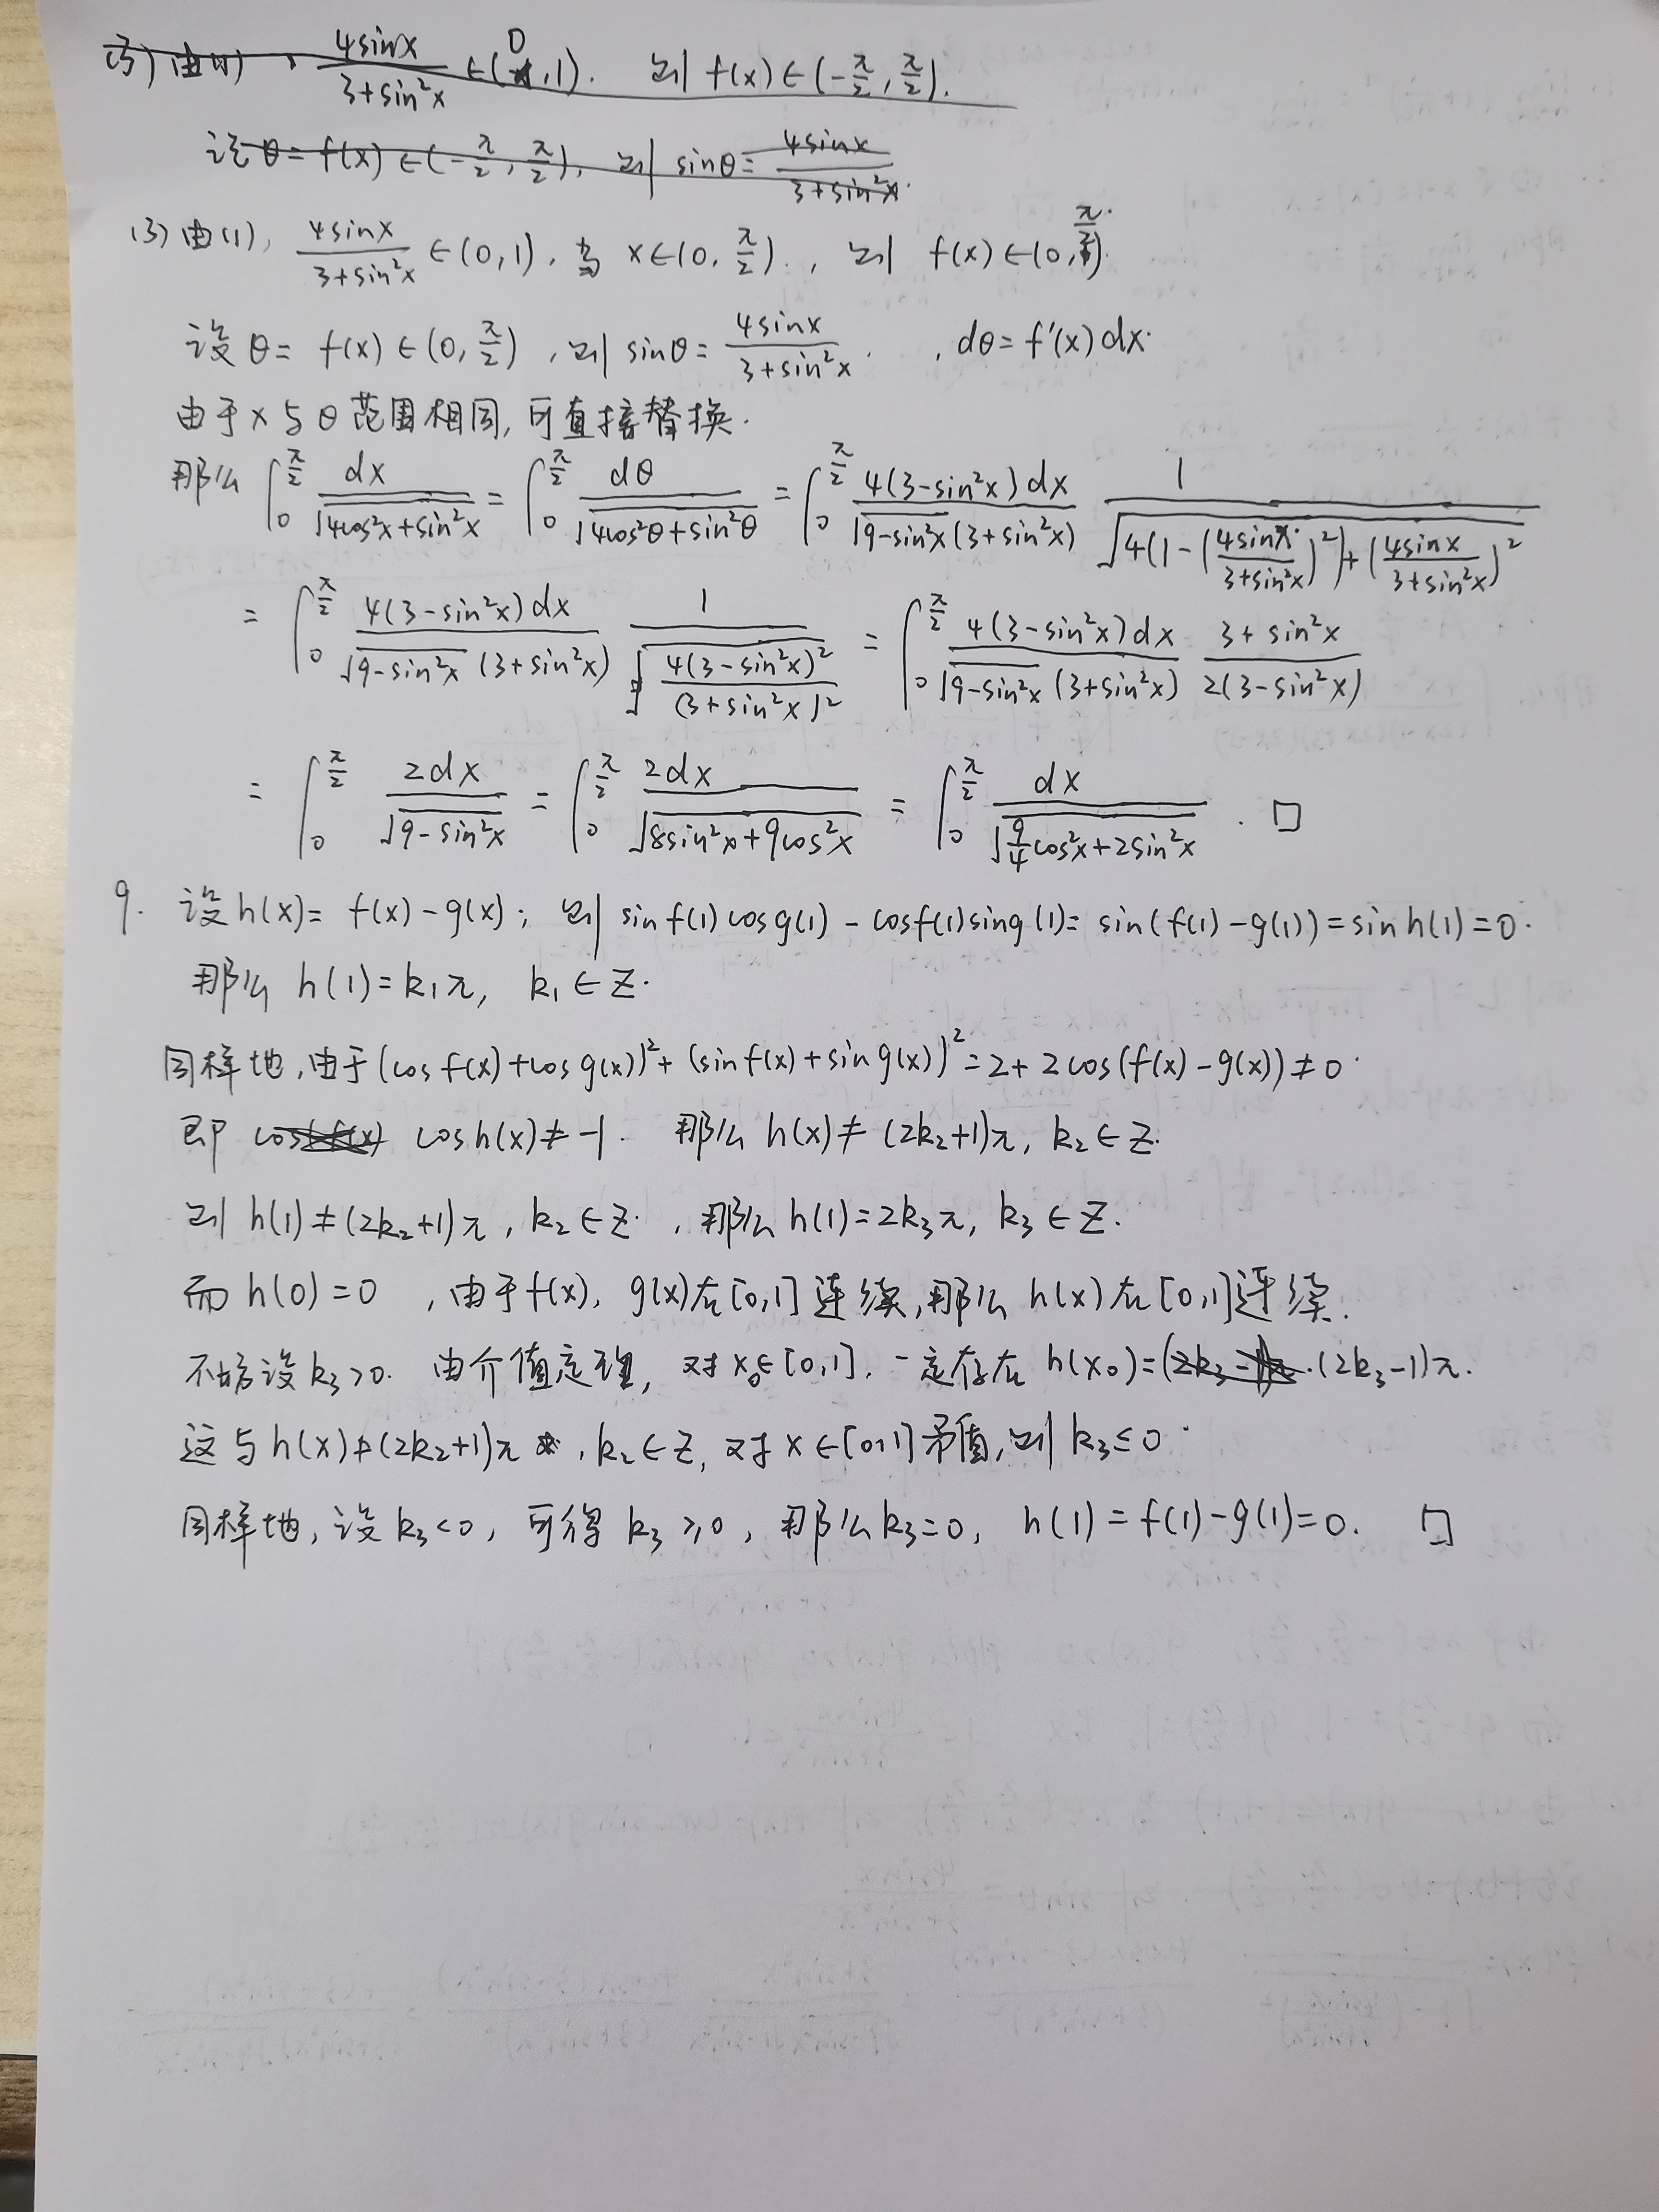 (3) 由(1), 4sinx/(3+sin²x) ∈(0,1). 则 f(x)∈(-π/2, π/2).
设θ= f(x)∈(-π/2, π/2), 则 sinθ= 4sinx/(3+sin²x).
(3) 由(1), 4sinx/(3+sin²x) ∈(0,1), 当 x∈(0, π/2)., 则 f(x)∈(0, π/2).
设θ= f(x)∈(0, π/2), 则 sinθ= 4sinx/(3+sin²x). , dθ= f'(x)dx.
由于x与θ范围相同,可直接替换.
那么 ∫₀^(π/2) dx/√(4cos²x+sin²x) = ∫₀^(π/2) dθ/√(4cos²θ+sin²θ) = ∫₀^(π/2) 4(3-sin²x)dx/(√(9-sin²x)(3+sin²x)) 1/√(4(1-(4sinx/(3+sin²x))²)+(4sinx/(3+sin²x))²)
= ∫₀^(π/2) 4(3-sin²x)dx/(√(9-sin²x)(3+sin²x)) 1/√(4(3-sin²x)²/(3+sin²x)²) = ∫₀^(π/2) 4(3-sin²x)dx/(√(9-sin²x)(3+sin²x)) (3+sin²x)/(2(3-sin²x))
= ∫₀^(π/2) 2dx/√(9-sin²x) = ∫₀^(π/2) 2dx/√(8sin²x+9cos²x) = ∫₀^(π/2) dx/√(9/4cos²x+2sin²x) . □
9. 设h(x)= f(x)-g(x); 则 sinf(1)cosg(1)-cosf(1)sing(1)= sin(f(1)-g(1))=sinh(1)=0.
那么 h(1)=k₁π, k₁∈Z.
同样地,由于(cosf(x)+cosg(x))²+(sinf(x)+sing(x))²=2+2cos(f(x)-g(x))≠0.
即 cosh(x)≠-1. 那么 h(x)≠(2k₂+1)π, k₂∈Z.
则 h(1)≠(2k₂+1)π, k₂∈Z. , 那么 h(1)=2k₃π, k₃∈Z.
而 h(0)=0 , 由于f(x), g(x)在[0,1]连续,那么 h(x)在[0,1]连续.
不妨设k₃>0. 由介值定理, 对x₀∈[0,1], 一定存在 h(x₀)=(2k₃-1)π.
这与h(x)≠(2k₂+1)π , k₂∈Z, 对x∈[0,1]矛盾,则 k₃≤0.
同样地, 设k₃<0, 可得 k₃≥0, 那么k₃=0, h(1)=f(1)-g(1)=0. □